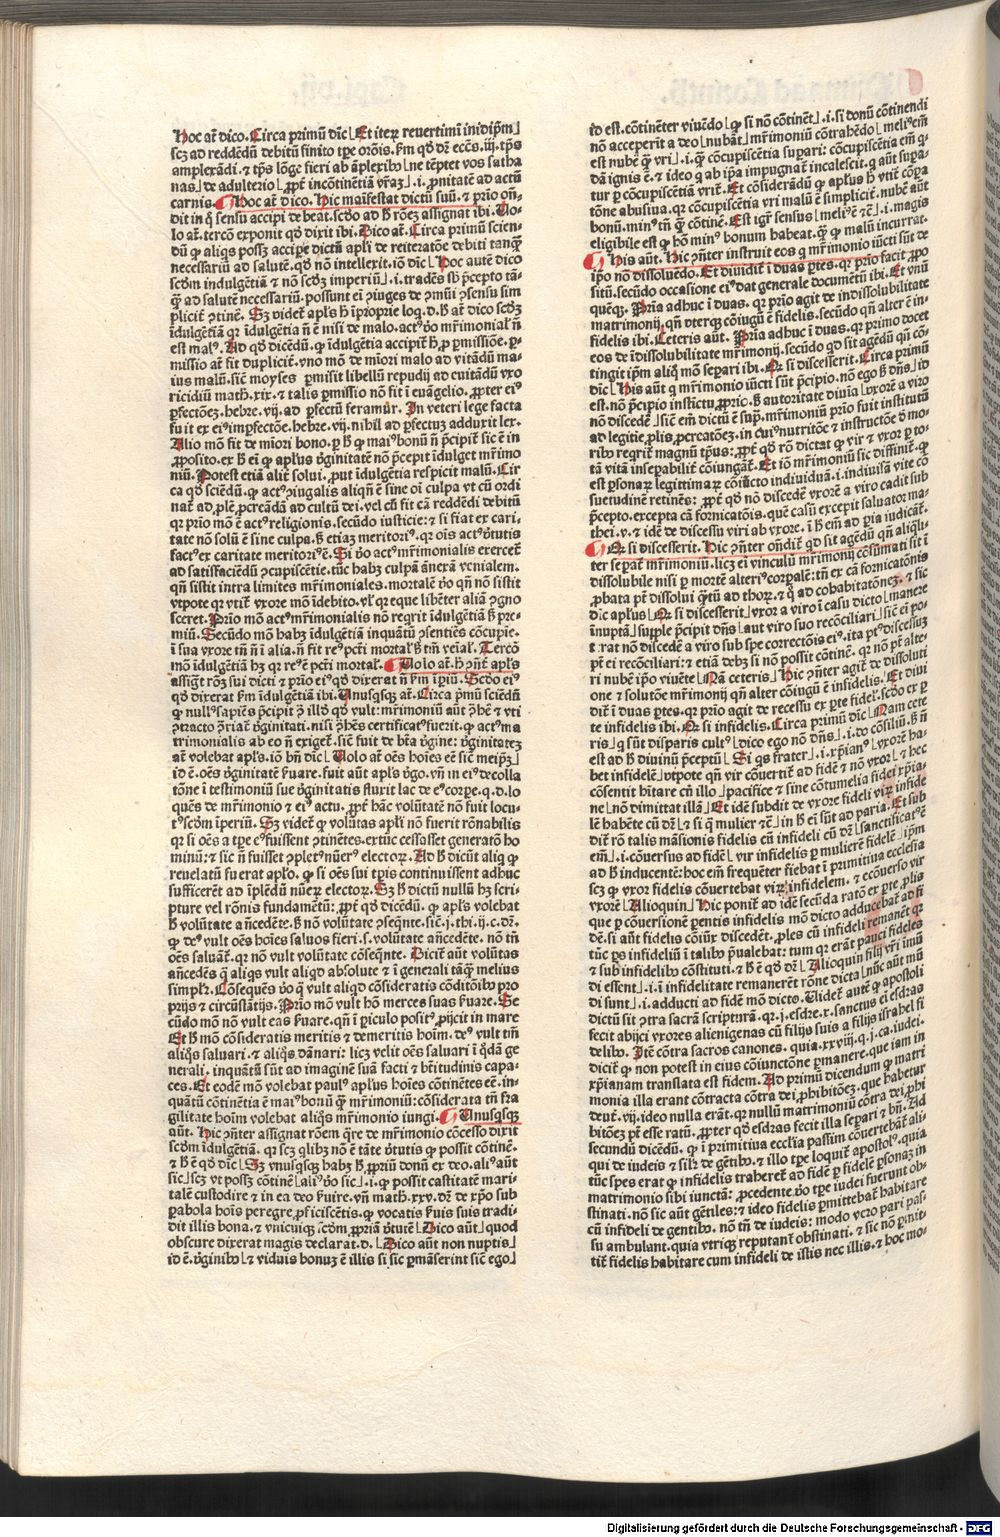 Hoc at̃ dico. Circa primũ dic̃ ⌊Et iteꝝ revertimĩ in idip̃m⌋
scʒ ad reddẽdũ debitũ finito tp̃e orõis. ẜm qđ dʒ ecc̃s. iij. tp̃s
amplexãdi. ⁊ tp̃s lõge fieri ab ãplexibꝰ ⌊ne tẽptet vos satha
nas⌋ de adulterio ⌊ꝓpt̃ incõtinẽtiã vr̃aʒ⌋. i. ꝓnitatẽ ad actũ
carnis. Hoc at̃ dico. Hic maĩfestat dictũ suũ. ⁊ ꝓ̃io oñ-
dit in q̃ sensu accipi debeat. scđo ad ħ rõeʒ assignat ibi. Uo-
lo at̃. tercõ exponit qđ dixit ibi. Dico at̃. Circa primũ scien-
dũ ꝙ aliqs possʒ accipe dictũ apl̃i de reiteratõe debiti tanqʒ
necessariũ ad salutẽ. qđ nõ intellexit. iõ dic̃ ⌊Hoc autẽ dico
scđm indulgẽtiã ⁊ nõ scđʒ imperiũ⌋. i. tradẽs sb̃ p̃cepto tã-
q̃ ad salutẽ necessariũ. possunt eĩ ꝯiuges de ꝯmũi ꝯsensu sim
pliciť ꝯtinẽ. Sʒ videt̃ apl̃s ħ ĩproprie loq̃. d. ħ at̃ dico scđʒ
ĩdulgẽtiã. qꝛ ĩdulgẽtia ñ ẽ nisi de malo. actꝰ v̾o mr̃imonial̃ ñ
est malꝰ. Ad qđ dicẽdũ. ꝙ ĩdulgẽtia accipit̃ ħ ꝓ ꝑmissiõe. ꝑ-
missio at̃ fit dupliciť. vno mõ de mĩori malo ad vitãdũ ma-
ius malũ. sic̃ moyses ꝑmisit libellũ repudij ad euitãdũ vxo
ricidiũ math. xix. ⁊ talis ꝑmissio nõ fit ĩ euãgelio. ꝓpter eiꝰ
ꝑfectõeʒ. hebre. vij. ad ꝑfectũ feramur. In veteri lege facta
fuit ex eiꝰ imꝑfectõe. hebre. vij. nihil ad ꝑfectuʒ adduxit lex.
Alio mõ fit de mĩori bono. ꝑ ħ ꝙ maiꝰ bonũ ñ p̃cipit̃ sic ẽ in
ꝓposito. ex ħ eĩ ꝙ apl̃us v̾ginitatẽ nõ p̃cepit ĩdulget mr̃imo
niũ. Potest etiã alit̃ solui. ꝓut ĩdulgẽtia respicit malũ. Cir
ca qđ sciẽdũ. ꝙ actꝰ ꝯiugalis aliqñ ẽ sine oĩ culpa vt cũ ordi
nat̃ ad ꝓlẽ ꝓcreãdã ad cultũ dei. vel cũ fit cã reddẽdi debitũ
qꝛ prio mõ ẽ actꝰ religionis. secũdo iusticie: ⁊ si fiat ex cari-
tate nõ solũ ẽ sine culpa. sʒ etiaʒ meritoriꝰ. qꝛ oĩs actꝰ v̾tutis
factꝰ ex caritate meritoriꝰ ẽ. Si v̾o actꝰ mr̃imonialis exercet̃
ad satisfaciẽdũ ꝯcupiscẽtie. tũc habʒ culpã ãnexã venialem.
qñ sistit intra limites mr̃imoniales. mortalẽ v̾o qñ nõ sistit
vtpote qꝛ vtit̃ vxore mõ ĩdebito. vl̃ qꝛ eque libẽter aliã ꝯgno
sceret. Prio mõ actꝰ mr̃imonialis nõ reqrit ĩdulgẽtiã sʒ pre-
miũ. Secũdo mõ habʒ ĩdulgẽtiã inquãtũ ꝯsentiẽs cõcupie.
ĩ sua vxore tñ ñ ĩ alia. ñ fit reꝰ pcti̾ mortal̃ sʒ tñ veial̃. Tercõ
mõ ĩdulgẽtiã hʒ qꝛ reꝰ ẽ pcti̾ mortal̃. Uolo at̃. ħ ꝯñt̃ apl̃s
assigt̃ rõʒ sui dicti ⁊ prio eiꝰ qđ dixerat ñ ẜm ĩpiũ. Scđo eiꝰ
qđ dixerat ẜm ĩdulgẽtiã ibi. Unusqsqʒ at̃. Circa p̃mũ sciẽdũ
ꝙ nullꝰ sapiẽs p̃cipit ꝓ illo qđ vult: mr̃imoniũ aũt ꝓhibẽ ⁊ vti
ꝯtracto ꝯ̃riat̃ v̾ginitati. nisi ꝓhibẽs certificatꝰ fuerit. ꝙ actꝰ ma
trimonialis ab eo ñ exiget̃. sic̃ fuit de bt̃a v̾gine: v̾ginitateʒ
at̃ volebat apl̃s. iõ bñ dic̃ ⌊Uolo at̃ oẽs hoĩes eẽ sic̃ meip̃ʒ⌋
id ẽ. oẽs v̾ginitatẽ ẜuare. fuit aũt apl̃s v̾go. vñ in eiꝰ decolla
tõne ĩ testimoniũ sue v̾ginitatis fluxit lac de eiꝰ corpe. q. d. lo
quẽs de mr̃imonio ⁊ eiꝰ actu. ꝓpt̃ hãc volũtatẽ nõ fuit locu-
tꝰ scđm ĩperiũ. Sʒ videt̃ ꝙ volũtas apl̃i nõ fuerit rõnabilis
qꝛ si oẽs a tp̃e eꝰ fuissent ꝯtinẽtes. extũc cessasset generatõ ho
minũ: ⁊ sic ñ fuisset ꝯpletꝰ nũerꝰ electoꝝ. Ad ħ dicũt aliq̃ ꝙ
reuelatũ fuerat apl̃o. ꝙ si oẽs sui tp̃is continuissent adhuc
sufficerẽt ad ĩplẽdũ nũeꝝ electoꝝ. Sʒ ħ dictũ nullũ hʒ scri-
pture vel rõnis fundamẽtũ: ꝓpt̃ qđ dicẽdũ. ꝙ apl̃s volebat
ħ volũtate añcedẽte. sʒ nõ volũtate ꝯseqñte. sic̃. j. thi. ij. c. dʒ.
ꝙ deꝰ vult oẽs hoĩes saluos fieri. s. volũtate añcedẽte. nõ tñ
oẽs saluat̃. qꝛ nõ vult volũtate cõseqñte. Dicit̃ aũt volũtas
añcedẽs q̃ aliqs vult aliqd absolute ⁊ ĩ generali tãqʒ melius
simpl̃r. Cõsequẽs v̾o q̃ vult aliqd cõsideratis cõditiõibꝰ pro
prijs ⁊ circũstãtijs. Prio mõ vult hõ merces suas ẜuare. Se
cũdo mõ nõ vult eas ẜuare. qñ ĩ piculo positꝰ ꝓijcit in mare
Et ħ mõ cõsideratis meritis ⁊ demeritis hoĩm. deꝰ vult tñ
aliqs̃ saluari. ⁊ aliqs̃ dãnari: licʒ velit oẽs saluari ĩ q̃dã ge
nerali. inquãtũ sũt ad imaginẽ suã facti ⁊ bt̃itudinis capa-
ces. Et eodẽ mõ volebat paulꝰ apl̃us hoĩes cõtinẽtes eẽ. in-
quãtũ cõtinẽtia ẽ maiꝰ bonũ qʒ mr̃imoniũ: cõsiderata tñ fra
gilitate hoĩm volebat aliqs̃ mr̃imonio iungi. Unusqsqʒ
aũt. Hic ꝯñter assignat rõem qre de mr̃imonio cõcesso dixit
scđm ĩdulgẽtiã. qꝛ scʒ qlibʒ nõ ẽ tãte v̾tutis ꝙ possit cõtinẽ.
⁊ ħ ẽ qđ dic̃ ⌊Sʒ vnusqsqʒ habʒ ꝓpriũ donũ ex deo. aliꝰ aũt
sic⌋ scʒ vt possʒ cõtinẽ ⌊aliꝰ v̾o sic⌋. i. ꝙ possit castitatẽ mari-
talẽ custodire ⁊ in ea deo ẜuire. vñ math. xxv. dʒ de xp̃o sub
ꝑabola hoĩs peregre ꝓficiscẽtis. ꝙ vocatis ẜuis suis tradi-
dit illis bona. ⁊ vnicuiqʒ scđm ꝓpriã v̾tutẽ ⌊Dico aũt⌋ quod
obscure dixerat magis declarat. d. ⌊Dico aũt non nuptis⌋
id ẽ. v̾ginibꝰ ⌊⁊ viduis bonuʒ ẽ illis si sic ꝑmãserint sic̃ ego⌋
id est. cõtinẽter viuẽdo ⌊ꝙ si nõ cõtinẽt⌋. i. si donũ cõtinendi
nõ acceperit a deo ⌊nubãt⌋ mr̃imoniũ cõtrahẽdo ⌊meliꝰ em̃
est nubẽ qʒ vri⌋. i. qʒ cõcupiscẽtia supari: cõcupiscẽtia em̃ q-
dã ignis ẽ. ⁊ ideo q̃ ab ip̃a impugnat̃ incalescit. q̃ aũt supa-
tur ꝑ cõcupiscẽtiã vrit̃. Et cõsiderãdũ ꝙ apl̃us ħ vtit̃ cõpa
tõne abusiua. qꝛ cõcupiscẽtia vri malũ ẽ simpliciť. nubẽ aũt
bonũ. minꝰ tñ qʒ cõtinẽ. Est igr̃ sensus ⌊meliꝰ ẽ ⁊c̃⌋. i. magis
eligibile est ꝙ hõ minꝰ bonum habeat. qʒ ꝙ malũ incurrat.
His aũt. Hic ꝯñter instruit eos q̃ mr̃imonio iũcti sũt de
ip̃o nõ dissoluẽdo. Et diuidit̃ ĩ duas ꝑtes. qꝛ prio facit ꝓpo
sitũ. secũdo occasione eiꝰ dat generale documẽtũ ibi. Et vnũ
quẽqʒ. Pr̃ia adhuc ĩ duas. qꝛ prio agit de indissolubilitate
matrimonij. qñ vterqʒ cõiugũ ẽ fidelis. secũdo qñ alter ẽ in-
fidelis ibi. Ceteris aũt. Pr̃ia adhuc ĩ duas. qꝛ primo docet
eos de ĩdissolubilitate mr̃imonij. secũdo qd sit agẽdũ qñ cõ-
tingit ip̃m aliq̃ mõ separi ibi. Qꝙ si discesserit. Circa primũ
dic̃ ⌊His aũt q̃ mr̃imonio iũcti sũt p̃cipio. nõ ego sʒ dñs⌋. id
est. nõ p̃cipio instictu ꝓprio. sʒ autoritate diuia ⌊vxorẽ a viro
nõ discedẽ⌋ sic̃ em̃ dictũ ẽ sup̃. mr̃imoniũ prio fuit institutũ
ad legitie ꝓlis ꝓcreatõeʒ. in cuiꝰ nutritõe ⁊ instructõe v̾o mo-
ribꝰ reqrit̃ magnũ tp̃us: ꝓpt̃ qđ rõ dictat ꝙ vir ⁊ vxor ꝑ to-
tã vitã insepabilit̃ cõiungat̃. Et iõ mr̃imoniũ sic diffinit̃. ꝙ
est ꝑsonaꝝ legittimaꝝ cõiũctio indiuidua. i. indiuisa vite cõ
suetudinẽ retinẽs: ꝓpt̃ qđ nõ discedẽ vxorẽ a viro cadit sub
p̃cepto. excepta cã fornicatõis. quẽ casũ excepit saluator ma-
thei. v. ⁊ idẽ de discessu viri ab vxore. ĩ ħ em̃ ad pia iudicãt̃.
Qꝙ si discesserit. Hic ꝯñter oñdit̃ qd sit agẽdũ qñ aliqli-
ter sepat̃ mr̃imoniũ. licʒ eĩ vinculũ mr̃imonij cõsũmati sit ĩ
dissolubile nisi ꝑ mortẽ alteriꝰ corꝑalẽ: tñ ex cã fornicatõnis
ꝓbata pt̃ dissolui qtũ ad thoꝝ. ⁊ q̃ ad cohabitatõneʒ. ⁊ sic
dic̃ apl̃us ⌊Qꝙ si discesserit⌋ vxor a viro ĩ casu dicto ⌊manere
ĩnuptã⌋ supple p̃cipit dñs ⌊aut viro suo recõciliari⌋ sic̃ eĩ po-
terat nõ discedẽ a viro sub spe correctõis eiꝰ. ita ptꝰ discessuʒ
pt̃ ei recõciliari: ⁊ etiã debʒ si nõ possit cõtinẽ. qꝛ nõ pt̃ alte-
ri nubẽ ip̃o viuẽte ⌊Nã ceteris⌋ Hic ꝯñter agit̃ de dissoluti
one ⁊ solutõe mr̃imonij qñ alter cõiugũ ẽ infidelis. Et diui
dit̃ ĩ duas ꝑtes. qꝛ prio agit de recessu ex ꝑte fidel̃. scđo ex ꝑ
te infidelis ibi. Qꝙ si infidelis. Circa primũ dic̃ ⌊Nam cete
ris⌋ q̃ sũt disparis cultꝰ ⌊dico ego nõ dñs⌋. i. do cõsiliũ. sʒ ñ
est ad ħ diuinũ p̃ceptũ ⌊Si qs frater⌋. i. xp̃ianꝰ ⌊vxorẽ ha-
bet infidelẽ⌋ vtpote qñ vir cõuertit̃ ad fidẽ ⁊ nõ vxor⌋ ⁊ hec
cõsentit hĩtare cũ illo⌋ pacifice ⁊ sine cõtumelia fidei xp̃ia-
ne⌊nõ dimittat illã⌋ Et idẽ subdit de vxore fideli viꝝ infide
lẽ habẽte cũ dʒ ⌊⁊ si q̃ mulier ⁊c̃⌋ in ħ eĩ sũt ad paria. Et sub
dit̃ rõ talis mãsionis fidelis cũ infideli cũ dʒ ⌊sanctificatꝰ ẽ
em̃⌋. i. cõuersus ad fidẽ ⌊vir infidelis ꝑ mulierẽ fidelẽ⌋ ip̃m
ad ħ inducentẽ: hoc em̃ frequẽter fiebat ĩ primitiua ecclesia
scʒ ꝙ vxor fidelis cõuertebat viꝝ infidelem. ⁊ ecõuerso vir
vxorẽ ⌊Alioquin⌋ Hic ponit̃ ad idẽ secũda ratõ ex ꝑte ꝓlis
que ꝑ cõuersionẽ ꝑentis infidelis mõ dicto adducebat̃ ad fi
dẽ. si aũt fidelis cõiũx discedet̃. ꝓles cũ infideli remanẽt qꝛ
tũc ꝑs infideliũ ĩ talibꝰ p̃ualebat: tum qꝛ erãt pauci fideles
⁊ sub infidelibꝰ cõstituti. ⁊ ħ ẽ qđ dʒ ⌊Alioquin filij vr̃i imũ
di essent⌋. i. ĩ infidelitate remanerẽt rõne dicta ⌊nũc aũt mũ
di sunt⌋. i. adducti ad fidẽ mõ dicto. Videt̃ autẽ ꝙ apostoli
dictũ sit ꝯtra sacrã scripturã. qꝛ. j. esdre. x. sanctus eĩ esdras
fecit abijci vxores alienigenas cũ filijs suis a filijs isrãhel fi
delibꝰ. Itẽ cõtra sacros canones. quia. xxviij. q. j. ca. iudei.
dicit̃ ꝙ non potest in eius cõiunctõne ꝑmanere. que iam in
xp̃ianam translata est fidem. Ad primũ dicendum ꝙ matri
monia illa erant cõtracta cõtra dei ꝓhibitõeʒ. que habetur
deut̃. vij. ideo nulla erãt. qꝛ nullũ matrimoniũ cõtra dei ꝓhi
bitõeʒ pt̃ esse ratũ. ꝓpter qđ esdras fecit illa separi ⁊ bñ. Ad
secundũ dicẽdũ. ꝙ ĩ primitiua ecclĩa passim cõuertebãt̃ ali-
qui de iudeis ⁊ sil̃r de gẽtibꝰ. ⁊ illo tp̃e loquit̃ apostolꝰ. quia
tũc spes erat ꝙ infidelis traheret̃ ad fidẽ ꝑ fidelẽ ꝑsonaʒ in
matrimonio sibi iunctã: ꝓcedente v̾o tp̃e iudei fuerunt ob-
stinati. nõ sic aũt gẽtiles: ⁊ ideo fidelis ꝑmittebat̃ habitare
cũ infideli de gentibꝰ. nõ tñ de iudeis: modo vero pari pas-
su ambulant. quia vtriqʒ reputant̃ obstinati. ⁊ sic nõ ꝑmit-
tit̃ fidelis habitare cum infideli de istis nec illis. ⁊ hoc mo-
Digitalisierung gefördert durch die Deutsche Forschungsgemeinschaft - DFG